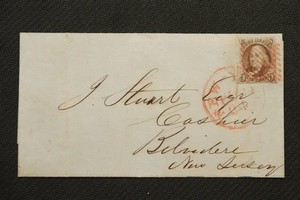 J. Stuart Esqr
Cashier
Belvidere
New Jersey